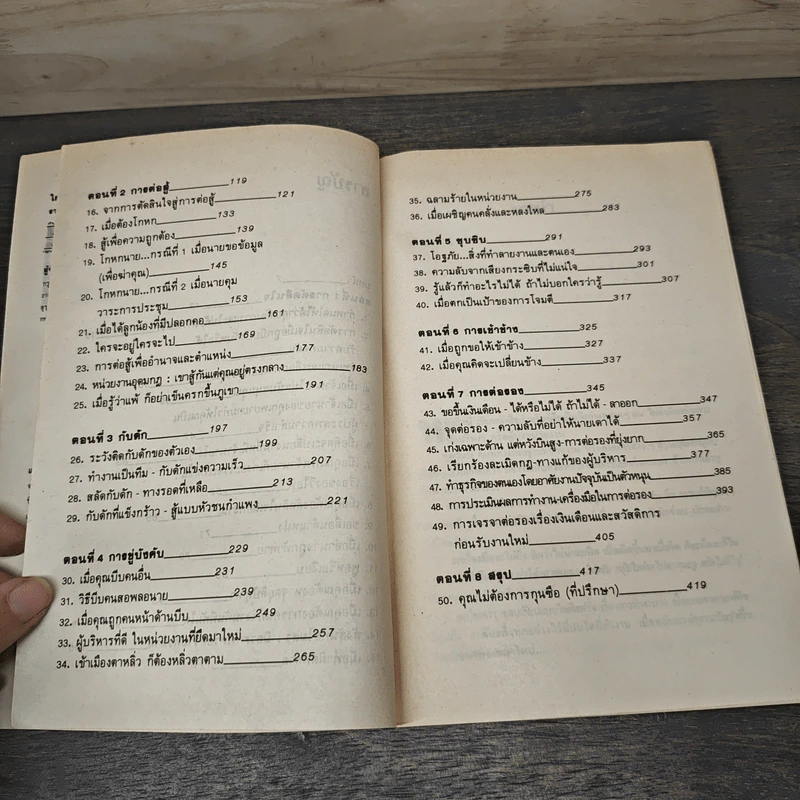 ตอนที่ 2 การต่อสู้ 119
16. จากการตัดสินใจสู่การต่อสู้ 121
17. เมื่อต้องโกหก 133
18. สู้เพื่อความถูกต้อง 139
19. โกหกนาย...กรณีที่ 1 เมื่อนายขอข้อมูล
(เพื่อฆ่าคุณ) 145
20. โกหกนาย...กรณีที่ 2 เมื่อนายคุม
วาระการประชุม 153
21. เมื่อได้ลูกน้องที่มีปลอกคอ 161
22. ใครจะอยู่ใครจะไป 169
23. การต่อสู้เพื่ออำนาจและตำแหน่ง 177
24. หน่วยงานอุดมกฎ : เขาสู้กันแต่คุณอยู่ตรงกลาง 183
25. เมื่อรู้ว่าแพ้ ก็อย่าเข็นครกขึ้นภูเขา 191
ตอนที่ 3 กับดัก 197
26. ระวังติดกับดักของตัวเอง 199
27. ทำงานเป็นทีม - กับดักแข่งความเร็ว 207
28. สลัดกับดัก - ทางรอดที่เหลือ 213
29. กับดักที่แข็งกร้าว - สู้แบบหัวชนกำแพง 221
ตอนที่ 4 การขู่บังคับ 229
30. เมื่อคุณบีบคนอื่น 231
31. วิธีบีบคนสอพลอนาย 239
32. เมื่อคุณถูกคนหน้าด้านบีบ 249
33. ผู้บริหารที่ดี ในหน่วยงานที่ยึดมาใหม่ 257
34. เข้าเมืองตาหลิ่ว ก็ต้องหลิ่วตาตาม 265
35. ฉลามร้ายในหน่วยงาน 275
36. เมื่อเผชิญคนคลั่งและหลงใหล 283
ตอนที่ 5 ซุบซิบ 291
37. โอฐภัย...สิ่งที่ทำลายงานและตนเอง 293
38. ความลับจากเสียงกระซิบที่ไม่แน่ใจ 301
39. รู้แล้วก็ทำอะไรไม่ได้ ถ้าไม่บอกใครว่ารู้ 307
40. เมื่อตกเป็นเป้าของการโจมตี 317
ตอนที่ 6 การเข้าข้าง 325
41. เมื่อถูกขอให้เข้าข้าง 327
42. เมื่อคุณคิดจะเปลี่ยนข้าง 337
ตอนที่ 7 การต่อรอง 345
43. ขอขึ้นเงินเดือน - ได้หรือไม่ได้ ถ้าไม่ได้ - ลาออก 347
44. จุดต่อรอง - ความลับที่อย่าให้นายเดาได้ 357
45. เก่งเฉพาะด้าน แต่หวังบินสูง-การต่อรองที่ยุ่งยาก 365
46. เรียกร้องละเมิดกฎ-ทางแก้ของผู้บริหาร 377
47. ทำธุรกิจของตนเองโดยอาศัยงานปัจจุบันเป็นตัวหนุน 385
48. การประเมินผลการทำงาน-เครื่องมือในการต่อรอง 393
49. การเจรจาต่อรองเรื่องเงินเดือนและสวัสดิการ
ก่อนรับงานใหม่ 405
ตอนที่ 8 สรุป 417
50. คุณไม่ต้องการกุนซือ (ที่ปรึกษา) 419